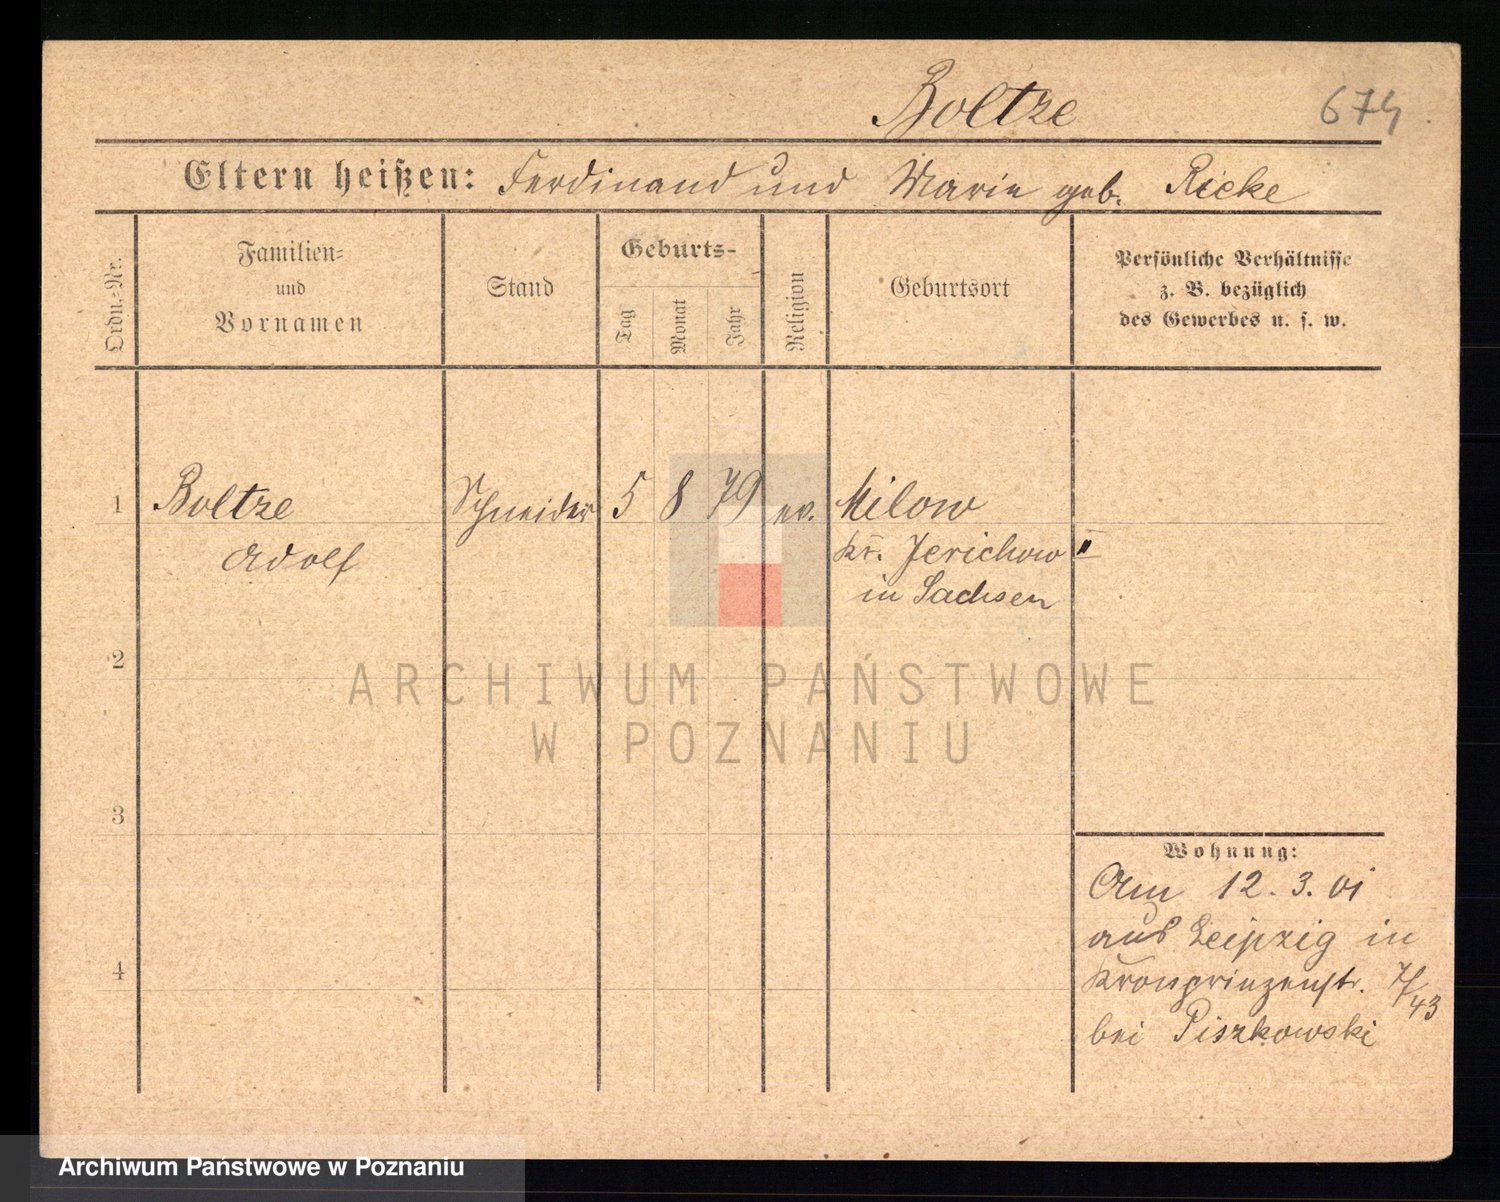 Boltze
674
Eltern heißen: Ferdinand und Marie geb. Ricke
Ordn.-Nr.
Familien-
und
Vornamen
Stand
Geburts-
Tag
Monat
Jahr
Religion
Geburtsort
Persönliche Verhältnisse
z. B. bezüglich
des Gewerbes u. s. w.
1 Boltze Schneider 5 8 79 ev. Milow
Adolf Kr. Jerichow II
in Sachsen
2
ARCHIWUM PAŃSTWOWE
W POZNANIU
3
Wohnung:
Am 12. 3. 01
aus Leipzig in
4
Kronprinzenstr. 7/43
bei Piszkowski
Archiwum Państwowe w Poznaniu